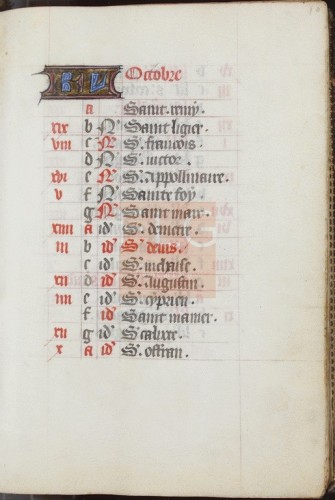 KL Octobre
a Saint remy.
xix b N Saint ligier.
viii c N S. francois.
d N S. victor.
xvi e N S. appollinaire.
v f N Sainte foy.
g N Saint marc.
xiii a id S. demetre.
iii b id S. denis.
c id S. nichaise.
xii d id S. augustin.
c id S. cyprien.
f id Saint
xii g id S. calixte.
x a id S.